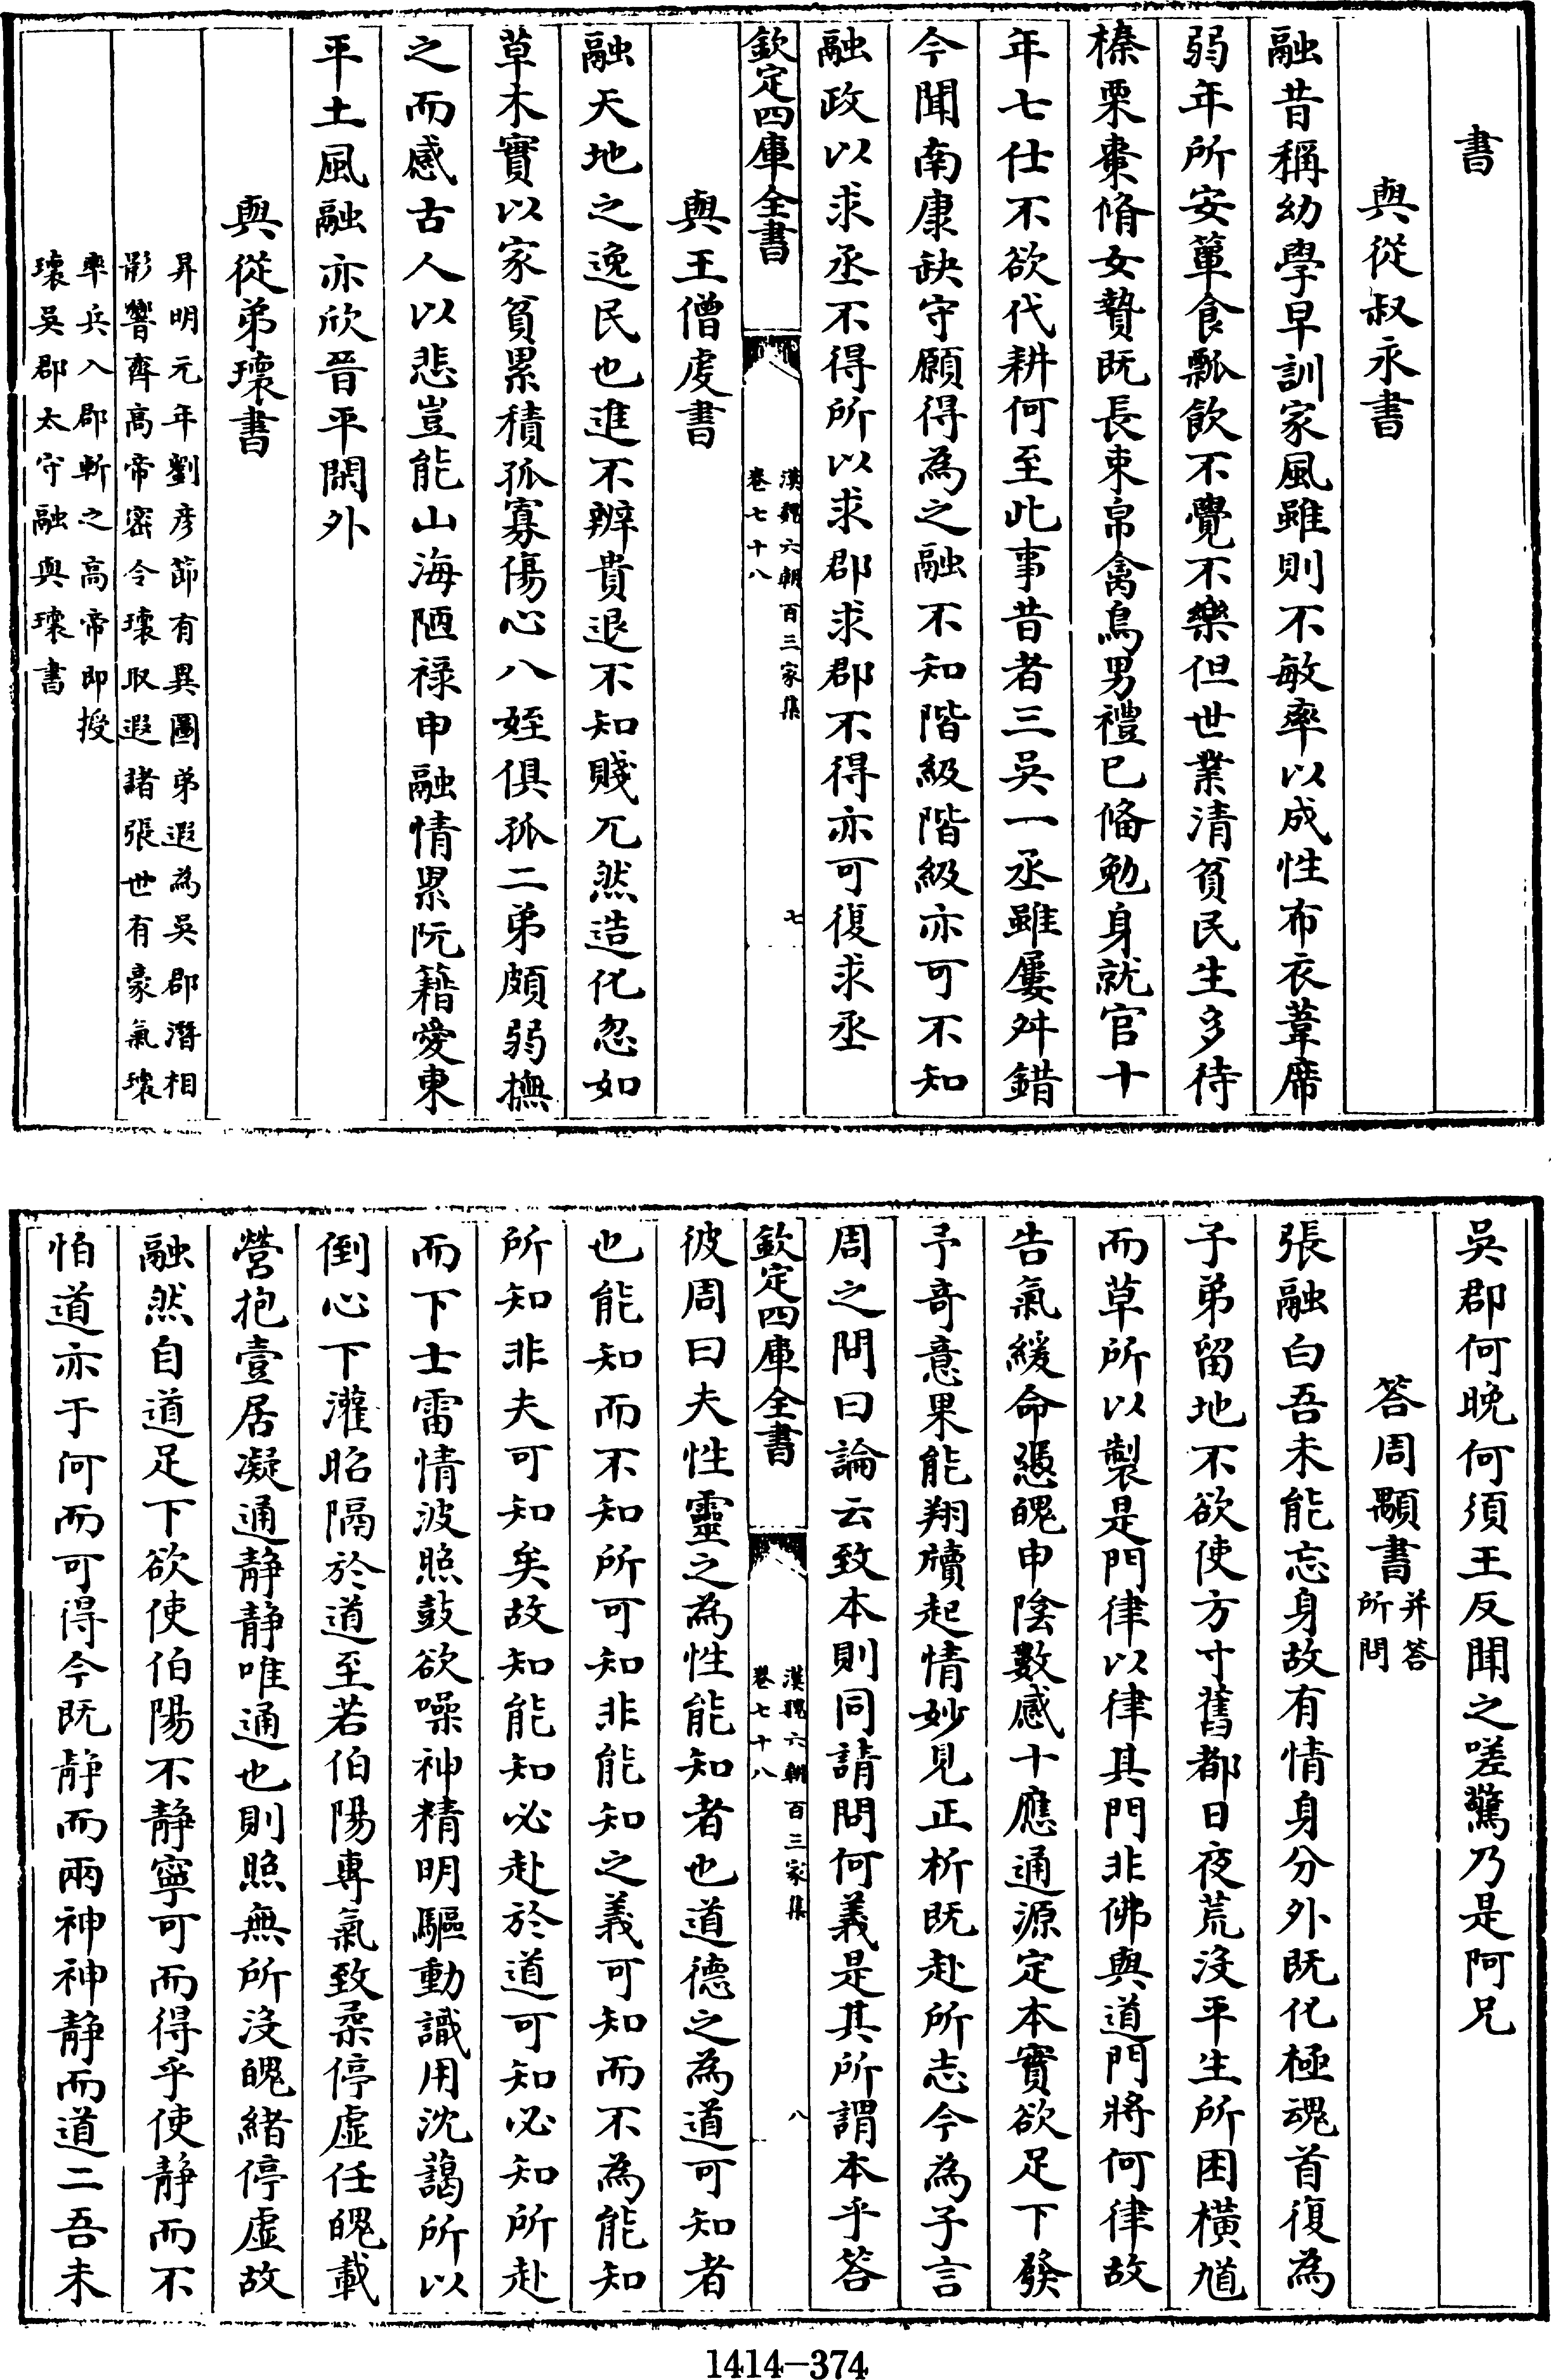 書
與從叔永書
融昔稱幼學早訓家風雖則不敏率以成性布衣葦席
弱年所安簞食瓢飲不覺不樂但世業清貧民生多待
榛栗棗脩女贄既長束帛禽鳥男禮已備勉身就官十
年七仕不欲代耕何至此事昔者三吳一丞雖屢舛錯
今聞南康缺守願得為之融不知階級階級亦可不知
融政以求丞不得所以求郡求郡不得亦可復求丞
欽定四庫全書
漢魏六朝百三家集
卷七十八
七
與王僧虔書
融天地之逸民也進不辨貴退不知賤兀然造化忽如
草木實以家貧累積孤寡傷心八姪俱孤二弟頗弱撫
之而感古人以悲豈能山海陋祿申融情累阮籍愛東
平土風融亦欣晉平閑外
與從弟瓌書
昇明元年劉彥節有異圖弟遐為吳郡潛相
影響齊高帝密令瓌取遐諸張世有豪氣瓌
率兵入郡斬之高帝即授
瓌吳郡太守融與瓌書
吳郡何晚何須王反聞之嗟驚乃是阿兄
答周顒書
并答
所問
張融白吾未能忘身故有情身分外既化極魂首復為
子弟留地不欲使方寸舊都日夜荒沒平生所困橫馗
而草所以製是門律以律其門非佛與道門將何律故
告氣緩命憑魄申陰數感十應通源定本實欲足下發
予奇意果能翔牘起情妙見正析既赴所志今為子言
周之問曰論云致本則同請問何義是其所謂本乎答
欽定四庫全書
漢魏六朝百三家集
卷七十八
八
彼周曰夫性靈之為性能知者也道德之為道可知者
也能知而不知所可知非能知之義可知而不為能知
所知非夫可知矣故知能知必赴於道可知必知所赴
而下士雷情波照鼓欲噪神精明驅動識用沈藹所以
倒心下灌昭隔於道至若伯陽專氣致柔停虛任魄載
營抱壹居凝通靜靜唯通也則照無所沒魄緒停虛故
融然自道足下欲使伯陽不靜寧可而得乎使靜而不
怕道亦于何而可得今既靜而兩神神靜而道二吾未
1414-374